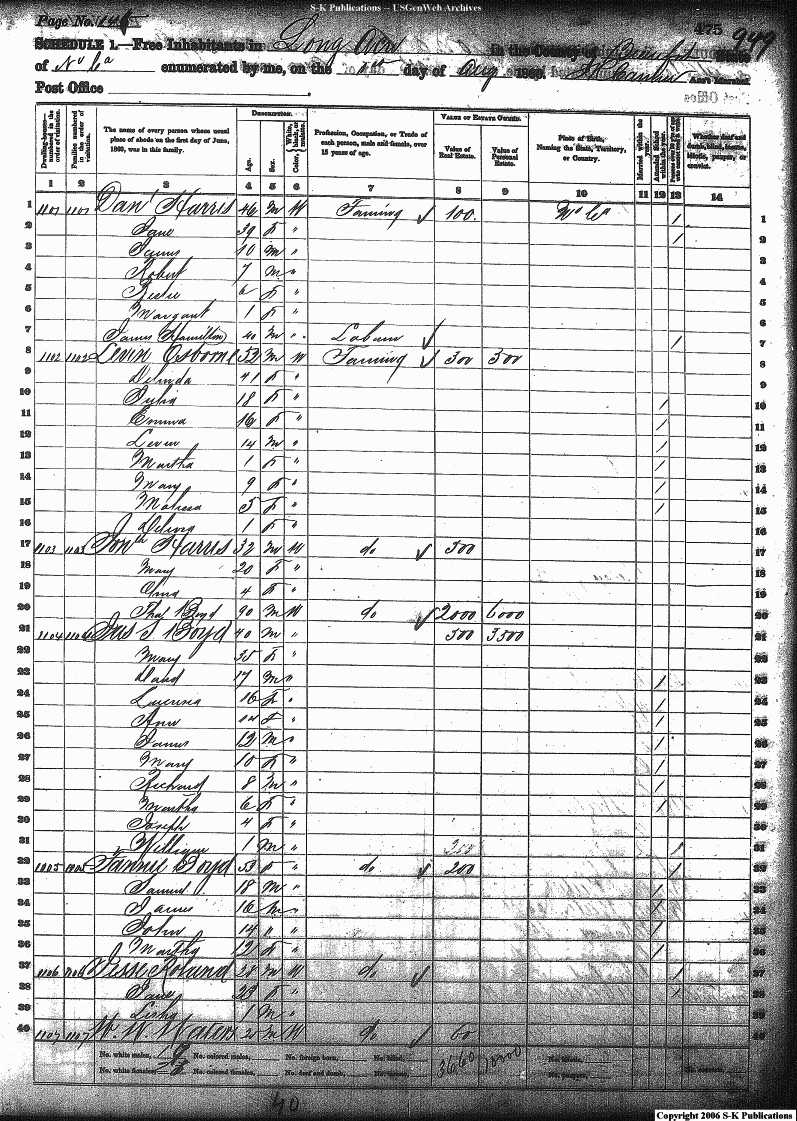 S-K Publications – USGenWeb Archives
Page No. 475 949
SCHEDULE 1.—Free Inhabitants in Long Acre in the County of Beaufort State
of No Ca enumerated by me, on the day of Aug 1860. Ass't Marshal
Post Office
DESCRIPTION. VALUE OF ESTATE OWNED.
Dwelling-houses—numbered in the order of visitation. Families numbered in the order of visitation. The name of every person whose usual place of abode on the first day of June, 1860, was in this family. Age. Sex. Color, White, black, or mulatto. Profession, Occupation, or Trade of each person, male and female, over 15 years of age. Value of Real Estate. Value of Personal Estate. Place of Birth, Naming the State, Territory, or Country. Married within the year. Attended School within the year. Whether deaf and dumb, blind, insane, idiotic, pauper, or convict.
1 2 3 4 5 6 7 8 9 10 11 12 13 14
1 1101 1101 Danl Harris 46 M W Farming 100 No Ca / 1
2 Jane 39 F " / 2
3 James 10 M " 3
4 Robert 7 M " 4
5 6 F " 5
6 Margaret 1 F " 6
7 James Hamilton 40 M " Laborer / 7
8 1102 1102 Levin Osborne 53 M W Farming 300 500 8
9 Delinda 41 F " 9
10 Julia 18 F " / 10
11 Emma 16 F " / 11
12 Leven 14 M " / 12
13 Martha 1 F " / 13
14 Mary 9 F " / 14
15 5 F " / 15
16 1 F " 16
17 1103 1103 Jon Harris 32 M W do 500 17
18 Mary 20 F " 18
19 4 F " 19
20 Thas Boyd 90 M W do 2000 6000 20
21 1104 1104 Jas S Boyd 40 M " 500 3500 21
22 Mary 35 F " 22
23 David 17 M " / 23
24 16 F " / 24
25 Ann 14 F " / 25
26 James 12 M " / 26
27 Mary 10 F " / 27
28 Richard 8 M " / 28
29 Martha 6 F " / 29
30 Joseph 4 F " 30
31 William 1 M " / 31
32 1105 1105 Fannie Boyd 53 F " do 200 / 32
33 Samuel 18 M " / 33
34 James 16 M " / 34
35 John 14 " " / 35
36 Martha 12 F " / 36
37 1106 1106 Jesse Roland 28 M W do / 37
38 Jane 23 F " / 38
39 1 M " 39
40 1107 1107 W. W. Waters 20 M W do 60 40
No. white males, 18 No. colored males, No. foreign born, No. blind, 3660 10000 No. idiotic,
No. white females, No. colored females, No. deaf and dumb, No. insane, No. paupers, No. convicts,
40
Copyright 2006 S-K Publications